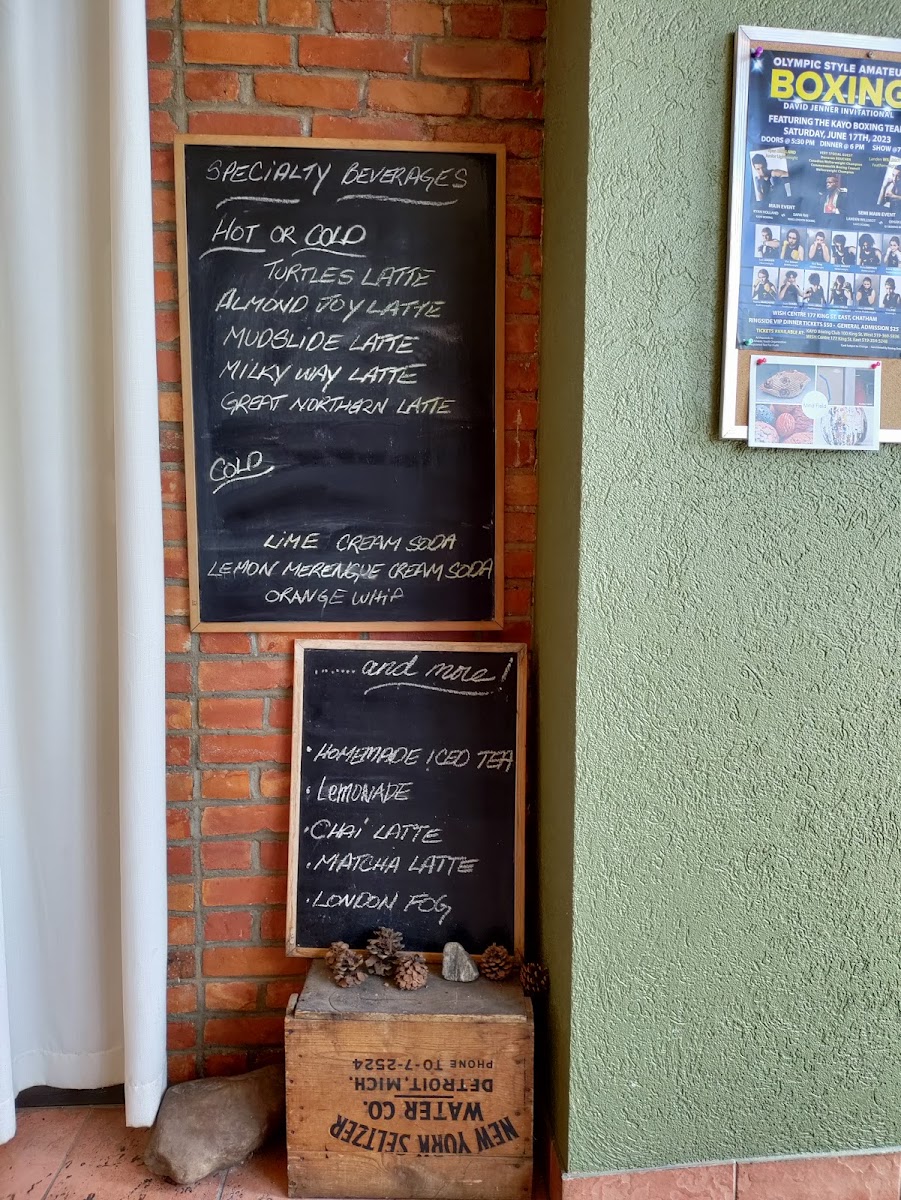 SPECIALTY BEVERAGES
HOT OR COLD
TURTLES LATTE
ALMOND JOY LATTE
MUDSLIDE LATTE
MILKY WAY LATTE
GREAT NORTHERN LATTE
COLD
LIME CREAM SODA
LEMON MERENGUE CREAM SODA
ORANGE WHIP
....... and more!
• HOMEMADE ICED TEA
• LEMONADE
• CHAI LATTE
• MATCHA LATTE
• LONDON FOG
NEW YORK SELTZER
WATER CO.
DETROIT, MICH.
PHONE TO-7-2524
OLYMPIC STYLE AMATEU
BOXING
DAVID JENNER INVITATIONAL
FEATURING THE KAYO BOXING TEA
SATURDAY, JUNE 17TH, 2023
DOORS @ 5:30 PM DINNER @ 6 PM SHOW @7
MAIN EVENT
SEMI MAIN EVENT
WISH CENTRE 177 KING ST. EAST, CHATHAM
RINGSIDE VIP DINNER TICKETS $50 • GENERAL ADMISSION $25